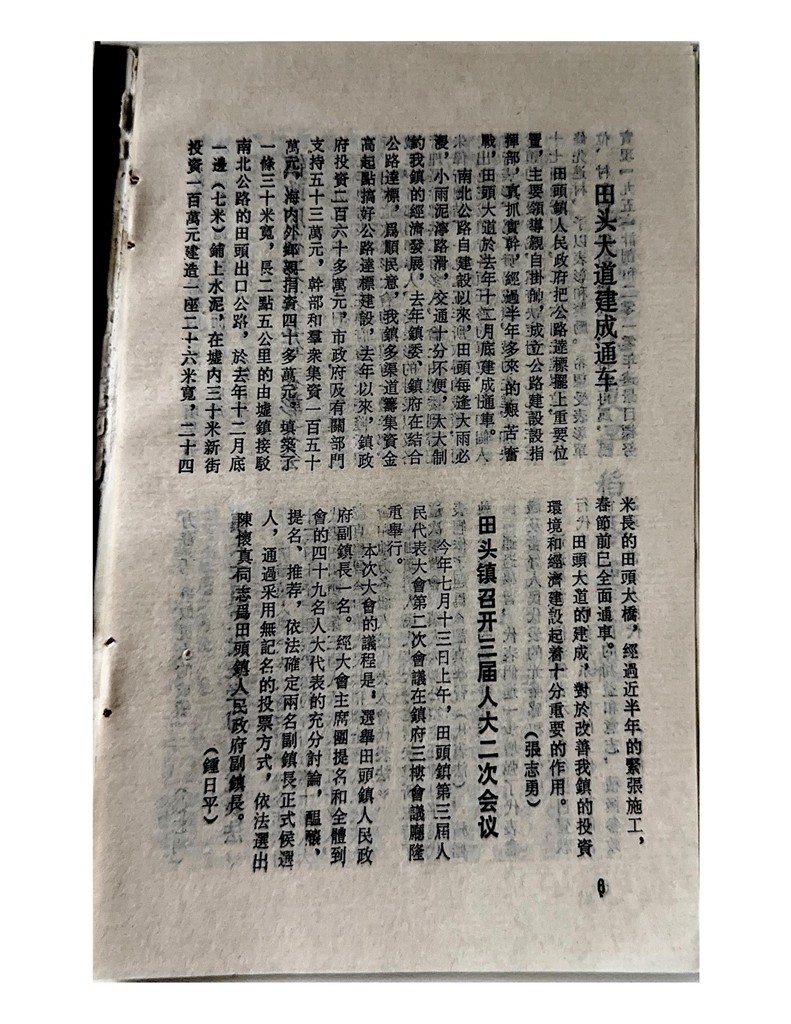 田头大道建成通车
田頭鎮人民政府把公路達標擺上重要位
置，主要領導親自掛帥，成立公路建設設指
揮部，真抓實幹，經過半年多來的艱苦奮
戰，田頭大道於去年十二月底建成通車。
南北公路自建設以來，田頭每逢大雨必
浸，小雨泥濘路滑，交通十分不便，大大制
約我鎮的經濟發展，去年鎮委、鎮府在結合
公路達標，爲順民意，我鎮多渠道籌集資金
高起點搞好公路達標建設，去年以來，鎮政
府投資二百六十多萬元，市政府及有關部門
支持五十三萬元，幹部和羣衆集資一百五十
萬元，海内外鄉親捐資四十多萬元，填築了
一條三十米寬，長二點五公里的由墟鎮接駁
南北公路的田頭出口公路，於去年十二月底
一邊（七米）鋪上水泥，在墟内三十米新街
投資一百萬元建造一座二十六米寬，二十四
米長的田頭大橋，經過近半年的緊張施工，
春節前已全面通車。
田頭大道的建成，對於改善我鎮的投資
環境和經濟建設起着十分重要的作用。
（張志勇）
田头镇召开三届人大二次会议
今年七月十三日上午，田頭鎮第三屆人
民代表大會第二次會議在鎮府三樓會議廳隆
重舉行。
本次大會的議程是：選舉田頭鎮人民政
府副鎮長一名。經大會主席團提名和全體到
會的四十九名人大代表的充分討論，醖釀、
提名、推荐，依法確定兩名副鎮長正式候選
人，通過采用無記名的投票方式，依法選出
陳懷真同志爲田頭鎮人民政府副鎮長。
（鍾日平）
6